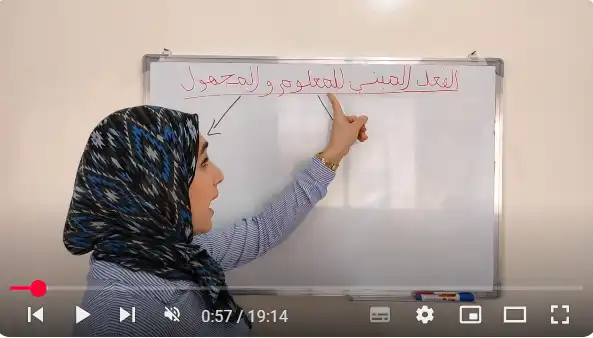 الفعل المبني للمعلوم و المجهول
0:57 / 19:14